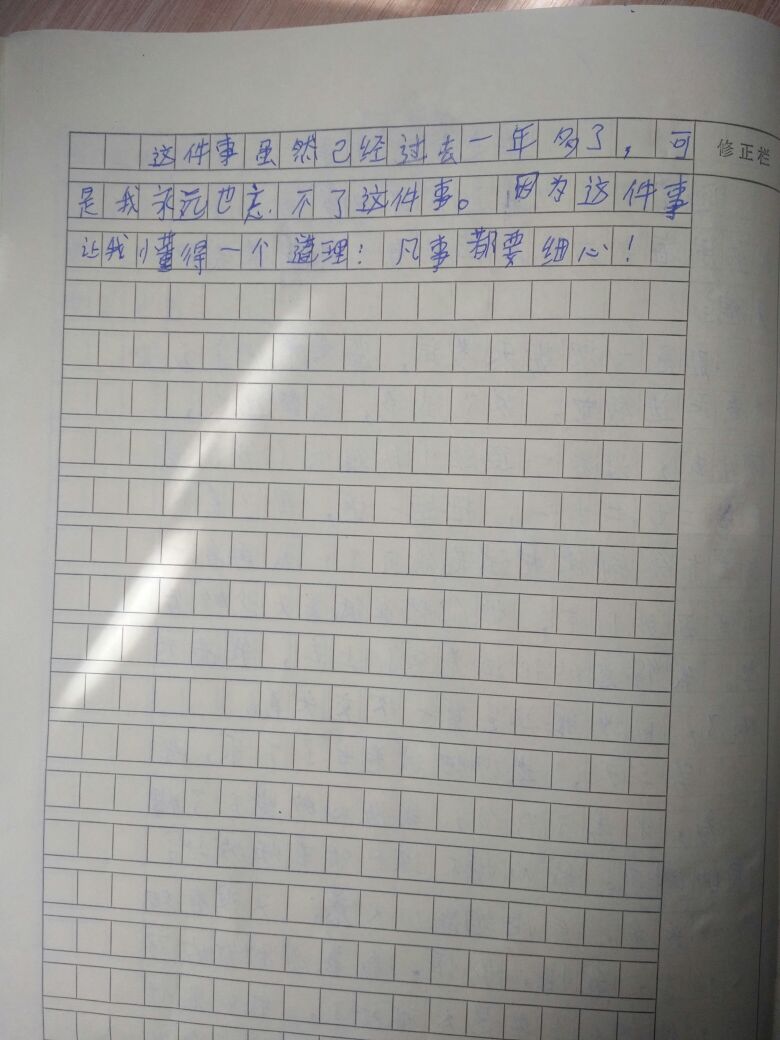 这件事虽然已经过去一年多了，可
修正栏
是我永远也忘不了这件事。因为这件事
让我懂得一个道理：凡事都要细心！